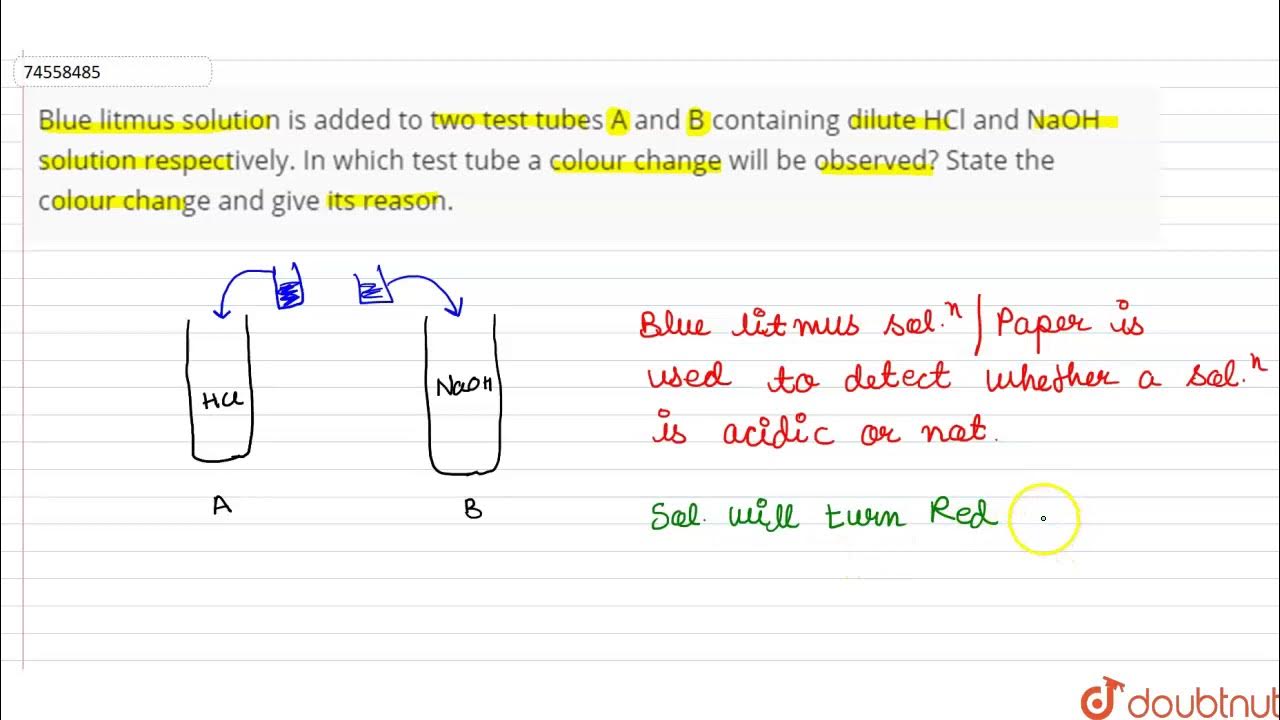 74558485
Blue litmus solution is added to two test tubes A and B containing dilute HCl and NaOH
solution respectively. In which test tube a colour change will be observed? State the
colour change and give its reason.
HCl
NaOH
A
B
Blue litmus sol.ⁿ | Paper is
used to detect whether a sol.ⁿ
is acidic or not.
Sol. will turn Red
doubtnut